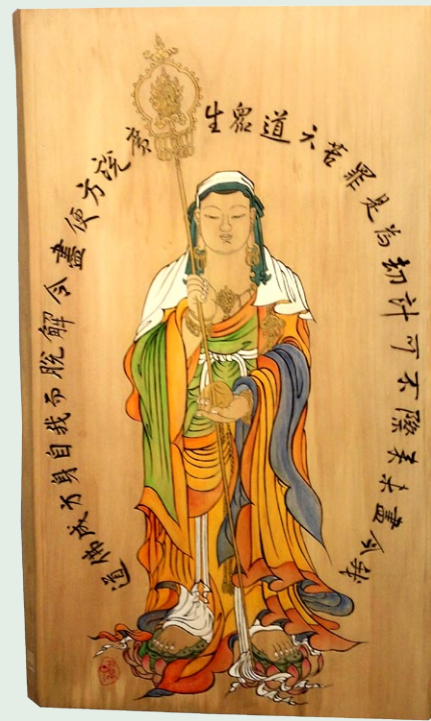 我今盡未来際不可計劫為是罪苦六道眾生廣設方便盡令解脫而我自身方成佛道